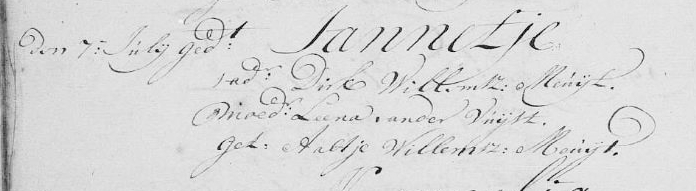 den 7: July ged:t Jannetje.
vad:r Dirk Willemsz: Muijt.
moed:r Leena vander Vuijst.
get: Aaltje Willemsz: Muijt.